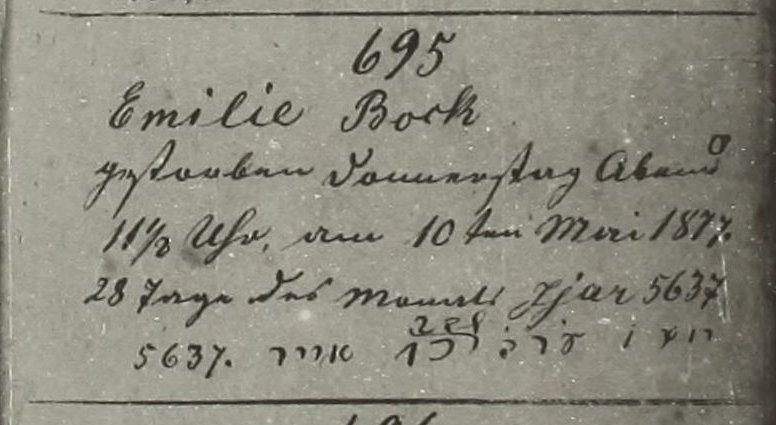 695
Emilie Bock
gestorben Donnerstag Abend
11½ Uhr, am 10ten Mai 1877.
28 Tage des Monats Jjar 5637
אייר 5637.